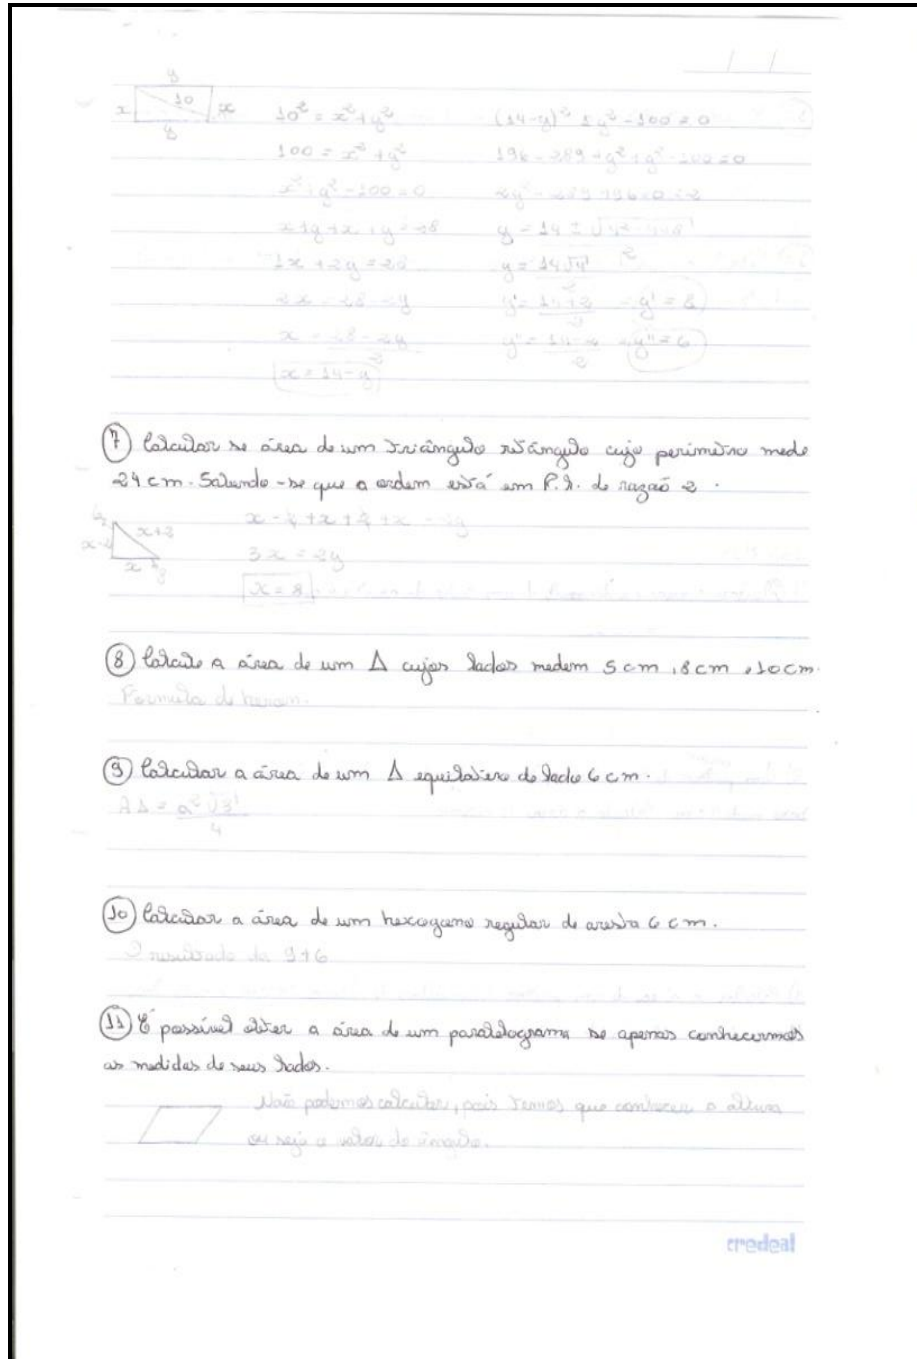 y
x 10 x
y
10² = x² + y²
100 = x² + y²
x² + y² - 100 = 0
x + y + x + y = 28
2x = 28 - 2y
x = 28 - 2y
2
x = 14 - y
(14-y)² + y² - 100 = 0
y' = 8
y'' = 14 - 2
2
y'' = 6
7 Calcular se área de um triângulo retângulo cujo perímetro mede
24 cm. Sabendo-se que a ordem está em P.A. de razão 2.
x+2
x
3x = 24
x = 8
8 Calcule a área de um Δ cujos lados medem 5 cm, 8 cm, 10 cm.
Formula de heron.
9 Calcular a área de um Δ equilatero de lado 6 cm.
AΔ = a² √3
4
10 Calcular a área de um hexogano regular de aresta 6 cm.
O resultado da 9+6
11 É possível obter a área de um paralelograma se apenas conhecermos
as medidas de seus lados.
Não podemos calcular, pois temos que conhecer a altura
ou seja o valor do ângulo.
credeal